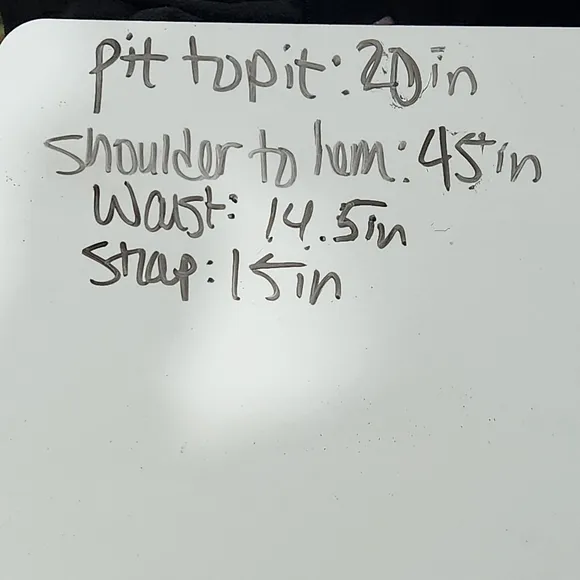 pit to pit: 20in
shoulder to hem: 45in
Waist: 14.5in
Strap: 15in